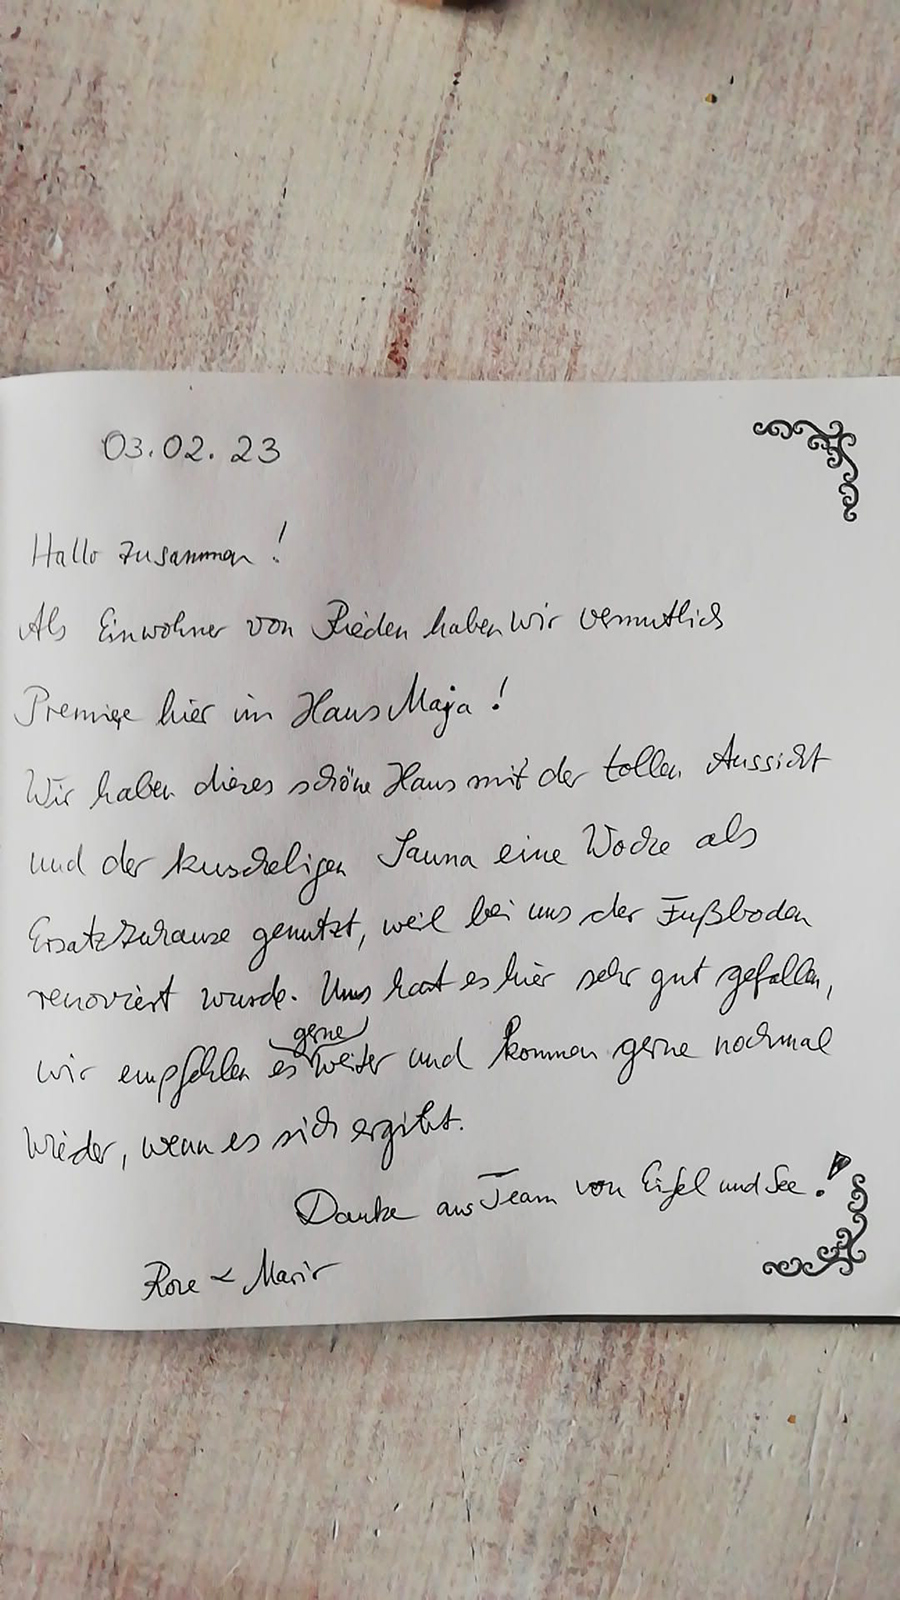 03.02.23
Hallo zusammen!
Als Einwohner von Rieden haben wir vermutlich
Premiere hier im Haus Maja!
Wir haben dieses schöne Haus mit der tollen Aussicht
und der kuscheligen Sauna eine Woche als
Ersatzzuhause genutzt, weil bei uns der Fußboden
renoviert wurde. Uns hat es hier sehr gut gefallen,
gerne
wir empfehlen es weiter und kommen gerne nochmal
wieder, wenn es sich ergibt.
Danke ans Team von Eifel und See!
&